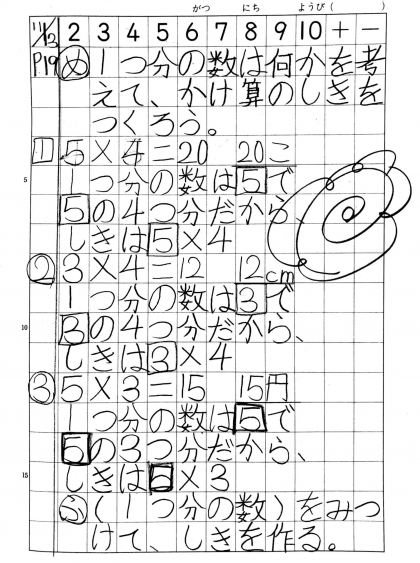 がつ にち ようび( )
11/13 2 3 4 5 6 7 8 9 10 + −
P.19 め 1つ分の数は何かを考
えて、かけ算のしきを
つくろう。
1 5×4=20 20こ
5 1つ分の数は5で
5の4つ分だから、
しきは5×4
2 3×4=12 12cm
1つ分の数は3で
10 3の4つ分だから、
しきは3×4
3 5×3=15 15円
1つ分の数は5で
5の3つ分だから、
15 しきは5×3
ふ(1つ分の数)をみつ
けて、しきを作る。